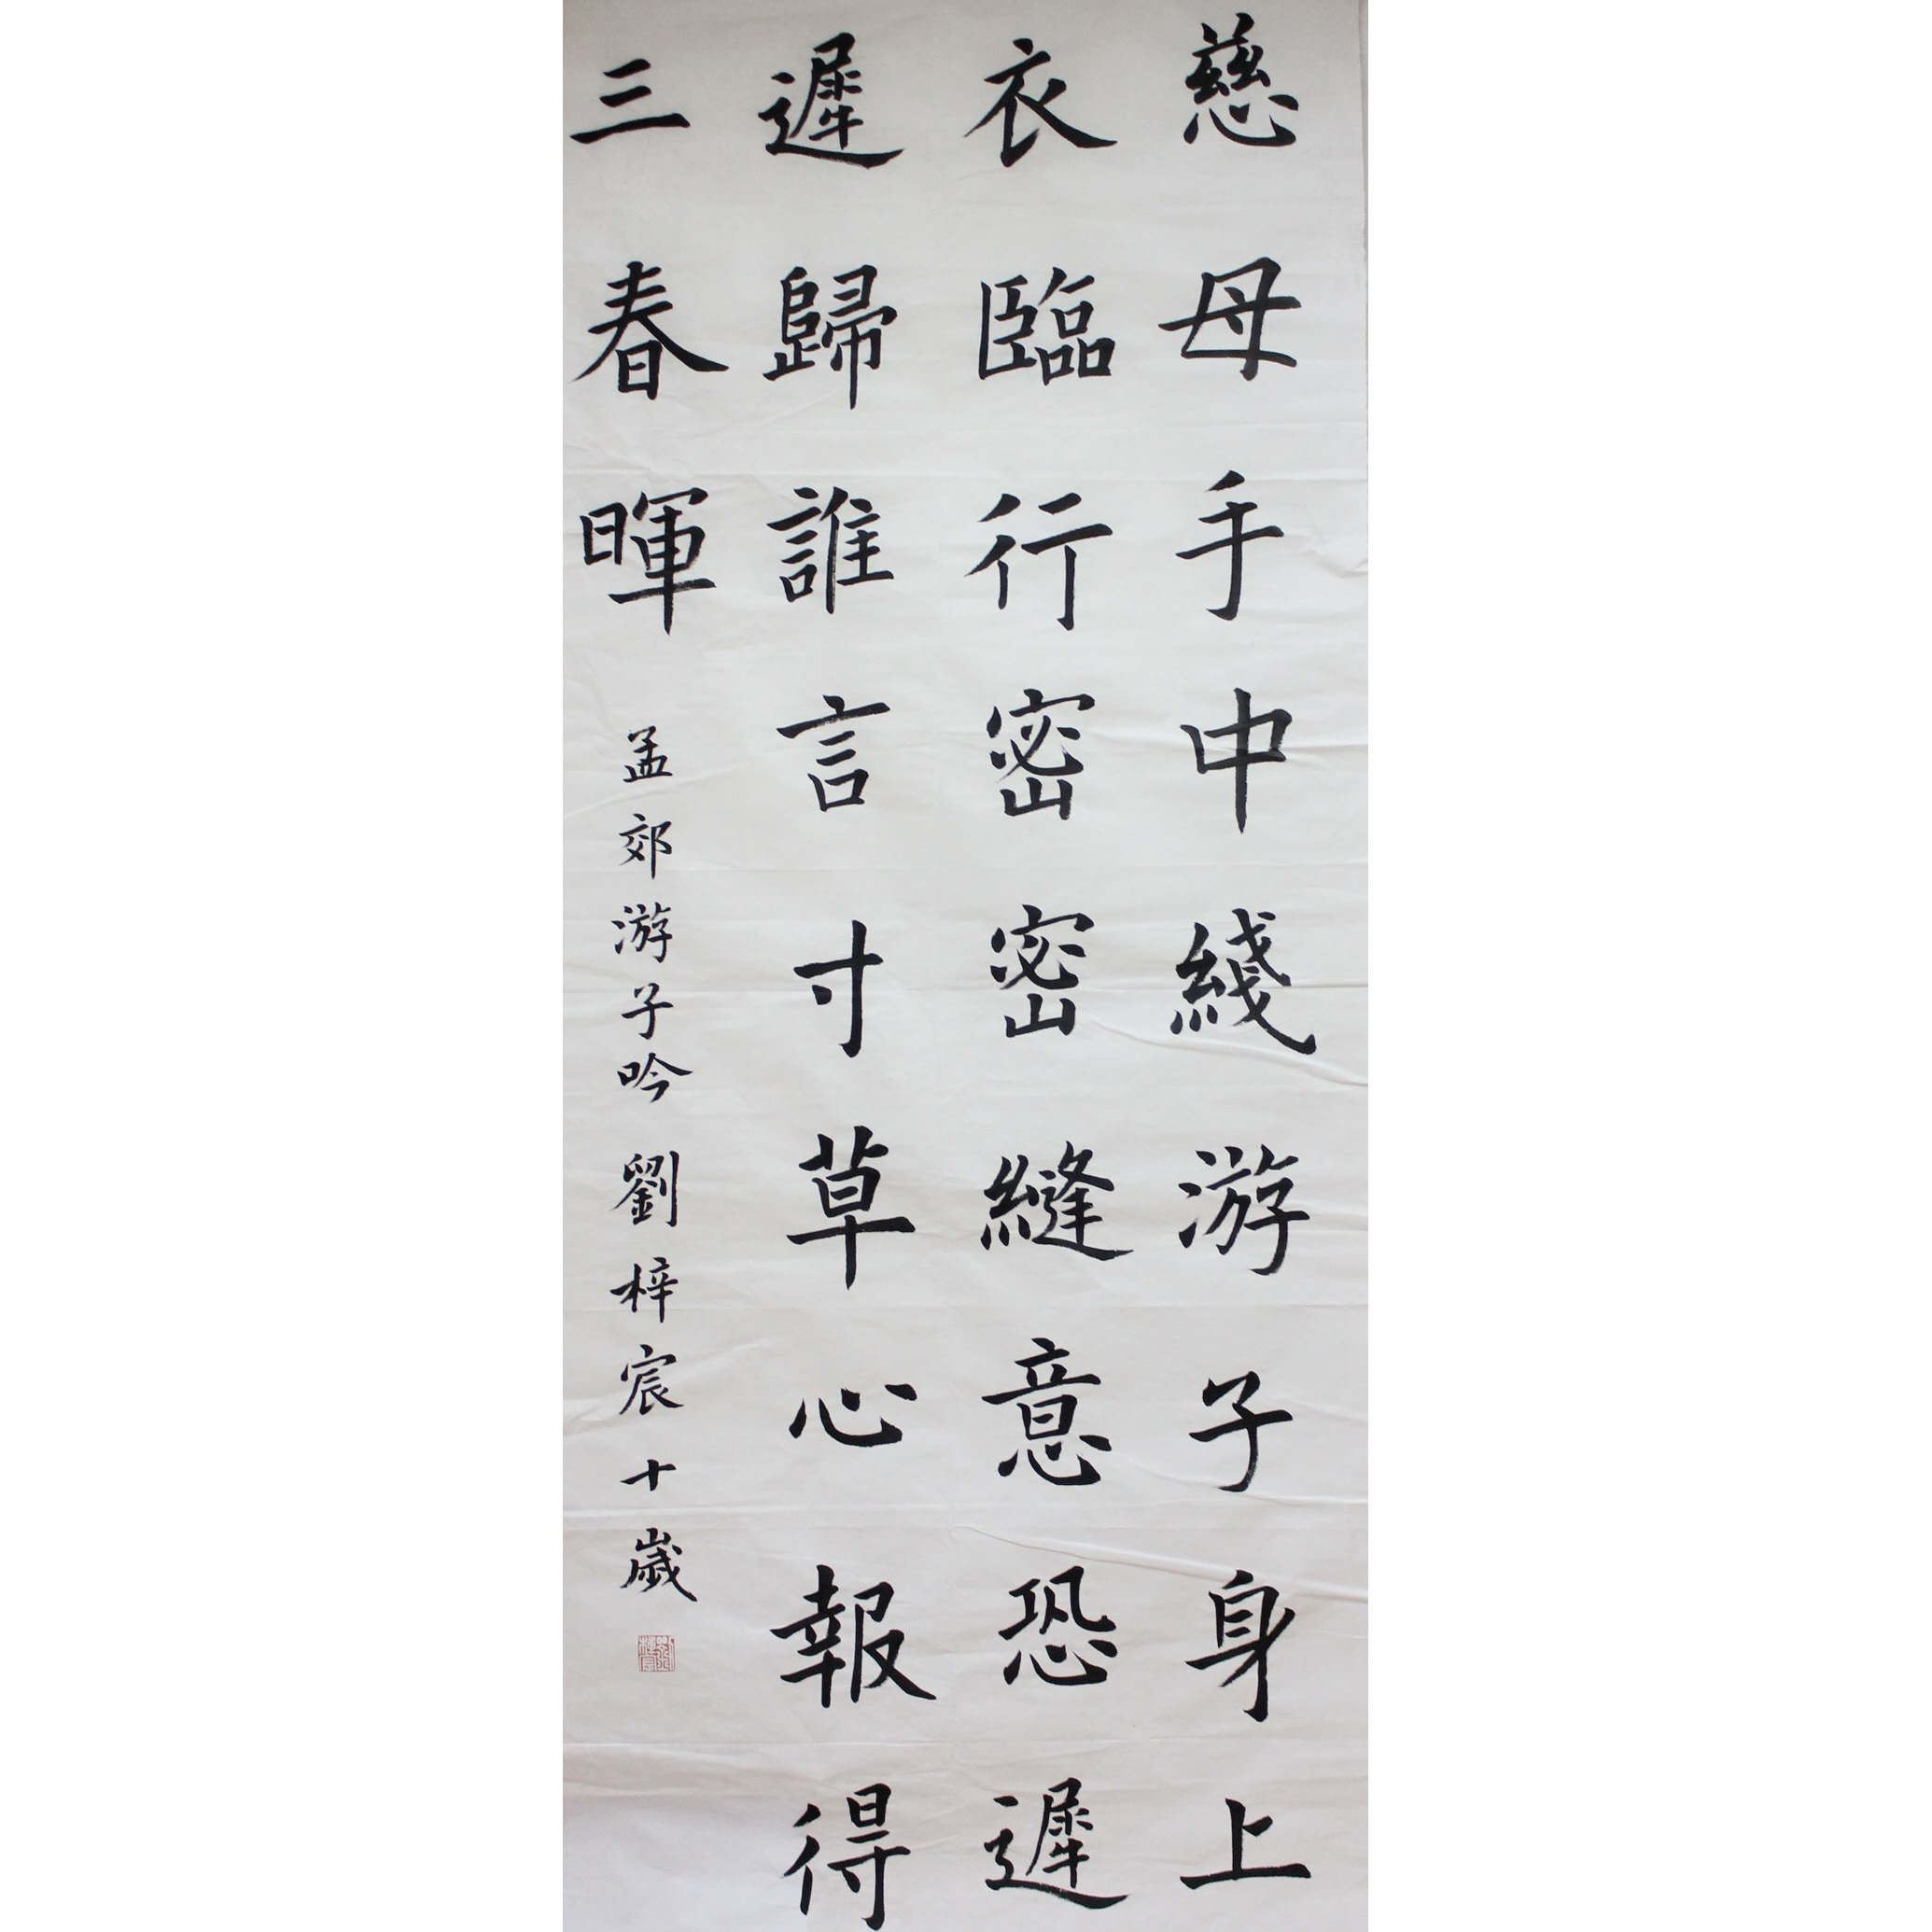 慈母手中綫游子身上
衣臨行密密縫意恐遲
遲歸誰言寸草心報得
三春暉
孟郊游子吟 劉梓宸十歲